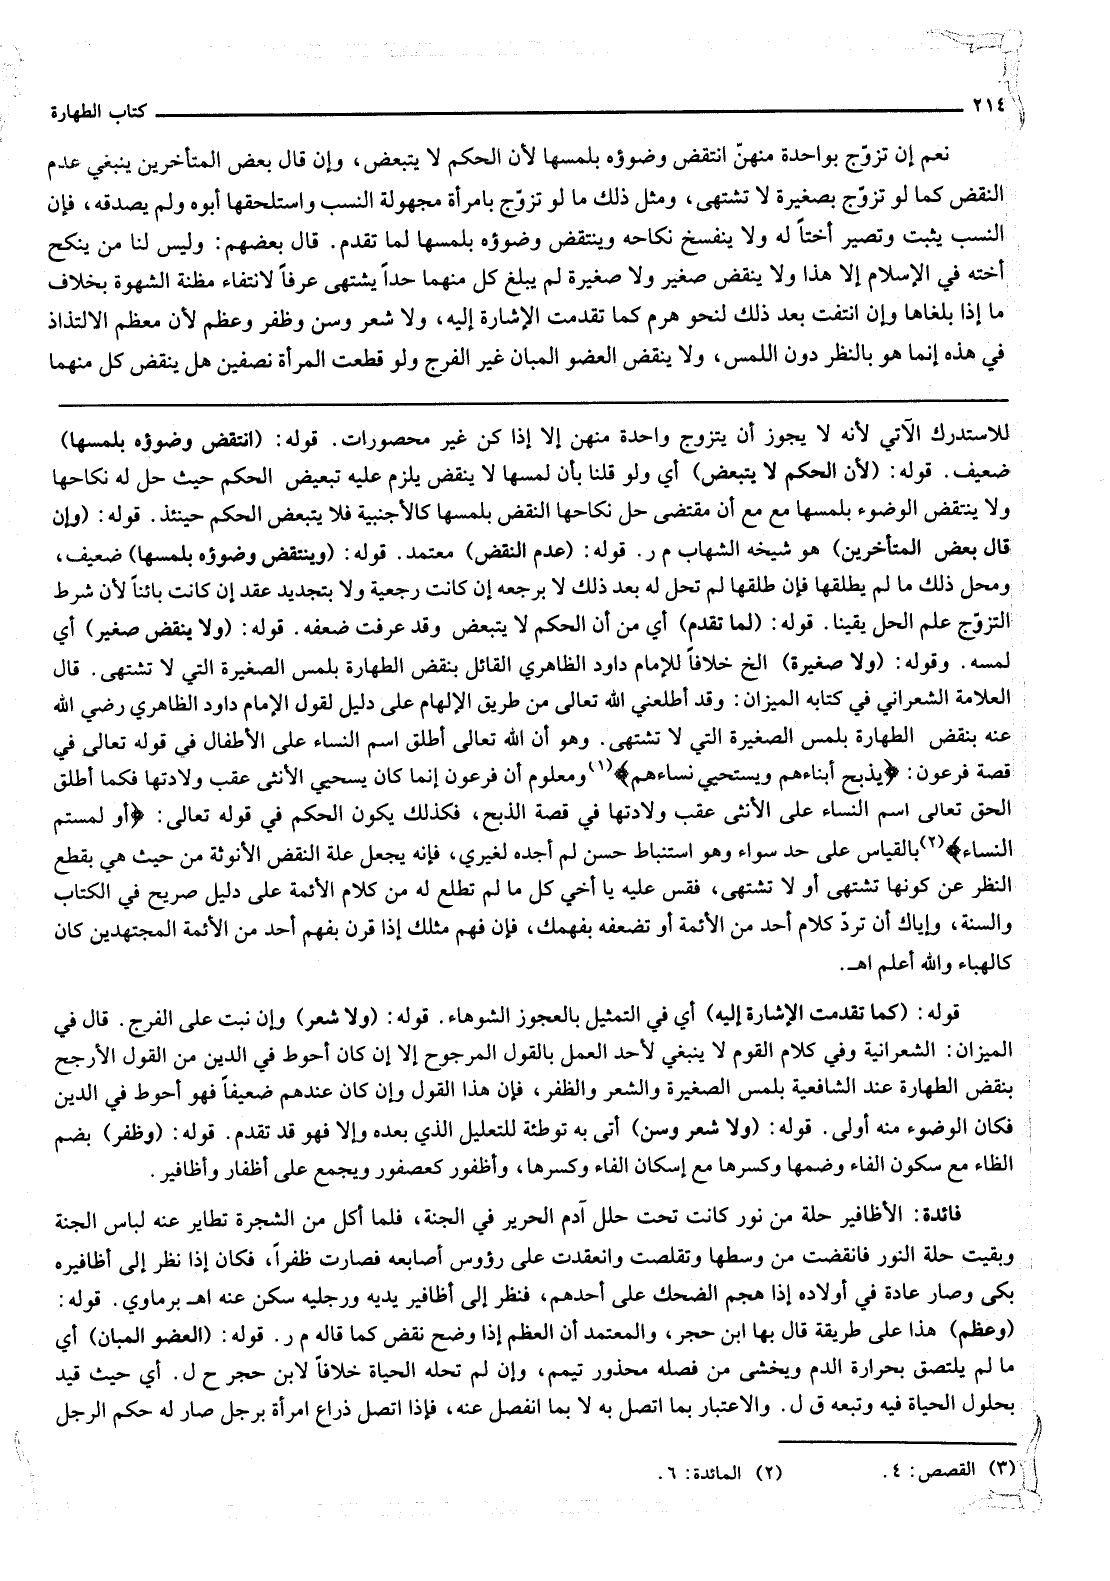 ٢١٤ كتاب الطهارة
نعم إن تزوّج بواحدة منهنّ انتقض وضوؤه بلمسها لأن الحكم لا يتبعض، وإن قال بعض المتأخرين ينبغي عدم
النقض كما لو تزوّج بصغيرة لا تشتهى، ومثل ذلك ما لو تزوّج بامرأة مجهولة النسب واستلحقها أبوه ولم يصدقه، فإن
النسب يثبت وتصير أختاً له ولا ينفسخ نكاحه وينتقض وضوؤه بلمسها لما تقدم. قال بعضهم: وليس لنا من ينكح
أخته في الإسلام إلا هذا ولا ينقض صغير ولا صغيرة لم يبلغ كل منهما حداً يشتهى عرفاً لانتفاء مظنة الشهوة بخلاف
ما إذا بلغاها وإن انتفت بعد ذلك لنحو هرم كما تقدمت الإشارة إليه، ولا شعر وسن وظفر وعظم لأن معظم الالتذاذ
في هذه إنما هو بالنظر دون اللمس، ولا ينقض العضو المبان غير الفرج ولو قطعت المرأة نصفين هل ينقض كل منهما
للاستدرك الآتي لأنه لا يجوز أن يتزوج واحدة منهن إلا إذا كن غير محصورات. قوله: (انتقض وضوؤه بلمسها)
ضعيف. قوله: (لأن الحكم لا يتبعض) أي ولو قلنا بأن لمسها لا ينقض يلزم عليه تبعيض الحكم حيث حل له نكاحها
ولا ينتقض الوضوء بلمسها مع مع أن مقتضى حل نكاحها النقض بلمسها كالأجنبية فلا يتبعض الحكم حينئذ. قوله: (وإن
قال بعض المتأخرين) هو شيخه الشهاب م ر. قوله: (عدم النقض) معتمد. قوله: (وينتقض وضوؤه بلمسها) ضعيف،
ومحل ذلك ما لم يطلقها فإن طلقها لم تحل له بعد ذلك لا برجعه إن كانت رجعية ولا بتجديد عقد إن كانت بائناً لأن شرط
التزوّج علم الحل يقينا. قوله: (لما تقدم) أي من أن الحكم لا يتبعض وقد عرفت ضعفه. قوله: (ولا ينقض صغير) أي
لمسه. وقوله: (ولا صغيرة) الخ خلافاً للإمام داود الظاهري القائل بنقض الطهارة بلمس الصغيرة التي لا تشتهى. قال
العلامة الشعراني في كتابه الميزان: وقد أطلعني الله تعالى من طريق الإلهام على دليل لقول الإمام داود الظاهري رضي الله
عنه بنقض الطهارة بلمس الصغيرة التي لا تشتهى. وهو أن الله تعالى أطلق اسم النساء على الأطفال في قوله تعالى في
قصة فرعون: ﴿يذبح أبناءهم ويستحيي نساءهم﴾(١) ومعلوم أن فرعون إنما كان يسحيي الأنثى عقب ولادتها فكما أطلق
الحق تعالى اسم النساء على الأنثى عقب ولادتها في قصة الذبح، فكذلك يكون الحكم في قوله تعالى: ﴿أو لمستم
النساء﴾(٢) بالقياس على حد سواء وهو استنباط حسن لم أجده لغيري، فإنه يجعل علة النقض الأنوثة من حيث هي بقطع
النظر عن كونها تشتهى أو لا تشتهى، فقس عليه يا أخي كل ما لم تطلع له من كلام الأئمة على دليل صريح في الكتاب
والسنة، وإياك أن تردّ كلام أحد من الأئمة أو تضعفه بفهمك، فإن فهم مثلك إذا قرن بفهم أحد من الأئمة المجتهدين كان
كالهباء والله أعلم اهـ.
قوله: (كما تقدمت الإشارة إليه) أي في التمثيل بالعجوز الشوهاء. قوله: (ولا شعر) وإن نبت على الفرج. قال في
الميزان: الشعرانية وفي كلام القوم لا ينبغي لأحد العمل بالقول المرجوح إلا إن كان أحوط في الدين من القول الأرجح
بنقض الطهارة عند الشافعية بلمس الصغيرة والشعر والظفر، فإن هذا القول وإن كان عندهم ضعيفاً فهو أحوط في الدين
فكان الوضوء منه أولى. قوله: (ولا شعر وسن) أتى به توطئة للتعليل الذي بعده وإلا فهو قد تقدم. قوله: (وظفر) بضم
الظاء مع سكون الفاء وضمها وكسرها مع إسكان الفاء وكسرها، وأظفور كعصفور ويجمع على أظفار وأظافير.
فائدة: الأظافير حلة من نور كانت تحت حلل آدم الحرير في الجنة، فلما أكل من الشجرة تطاير عنه لباس الجنة
وبقيت حلة النور فانقضت من وسطها وتقلصت وانعقدت على رؤوس أصابعه فصارت ظفراً، فكان إذا نظر إلى أظافيره
بكى وصار عادة في أولاده إذا هجم الضحك على أحدهم، فنظر إلى أظافير يديه ورجليه سكن عنه اهـ برماوي. قوله:
(وعظم) هذا على طريقة قال بها ابن حجر، والمعتمد أن العظم إذا وضح نقض كما قاله م ر. قوله: (العضو المبان) أي
ما لم يلتصق بحرارة الدم ويخشى من فصله محذور تيمم، وإن لم تحله الحياة خلافاً لابن حجر ح ل. أي حيث قيد
بحلول الحياة فيه وتبعه ق ل. والاعتبار بما اتصل به لا بما انفصل عنه، فإذا اتصل ذراع امرأة برجل صار له حكم الرجل
(٣) القصص: ٤. (٢) المائدة: ٦.